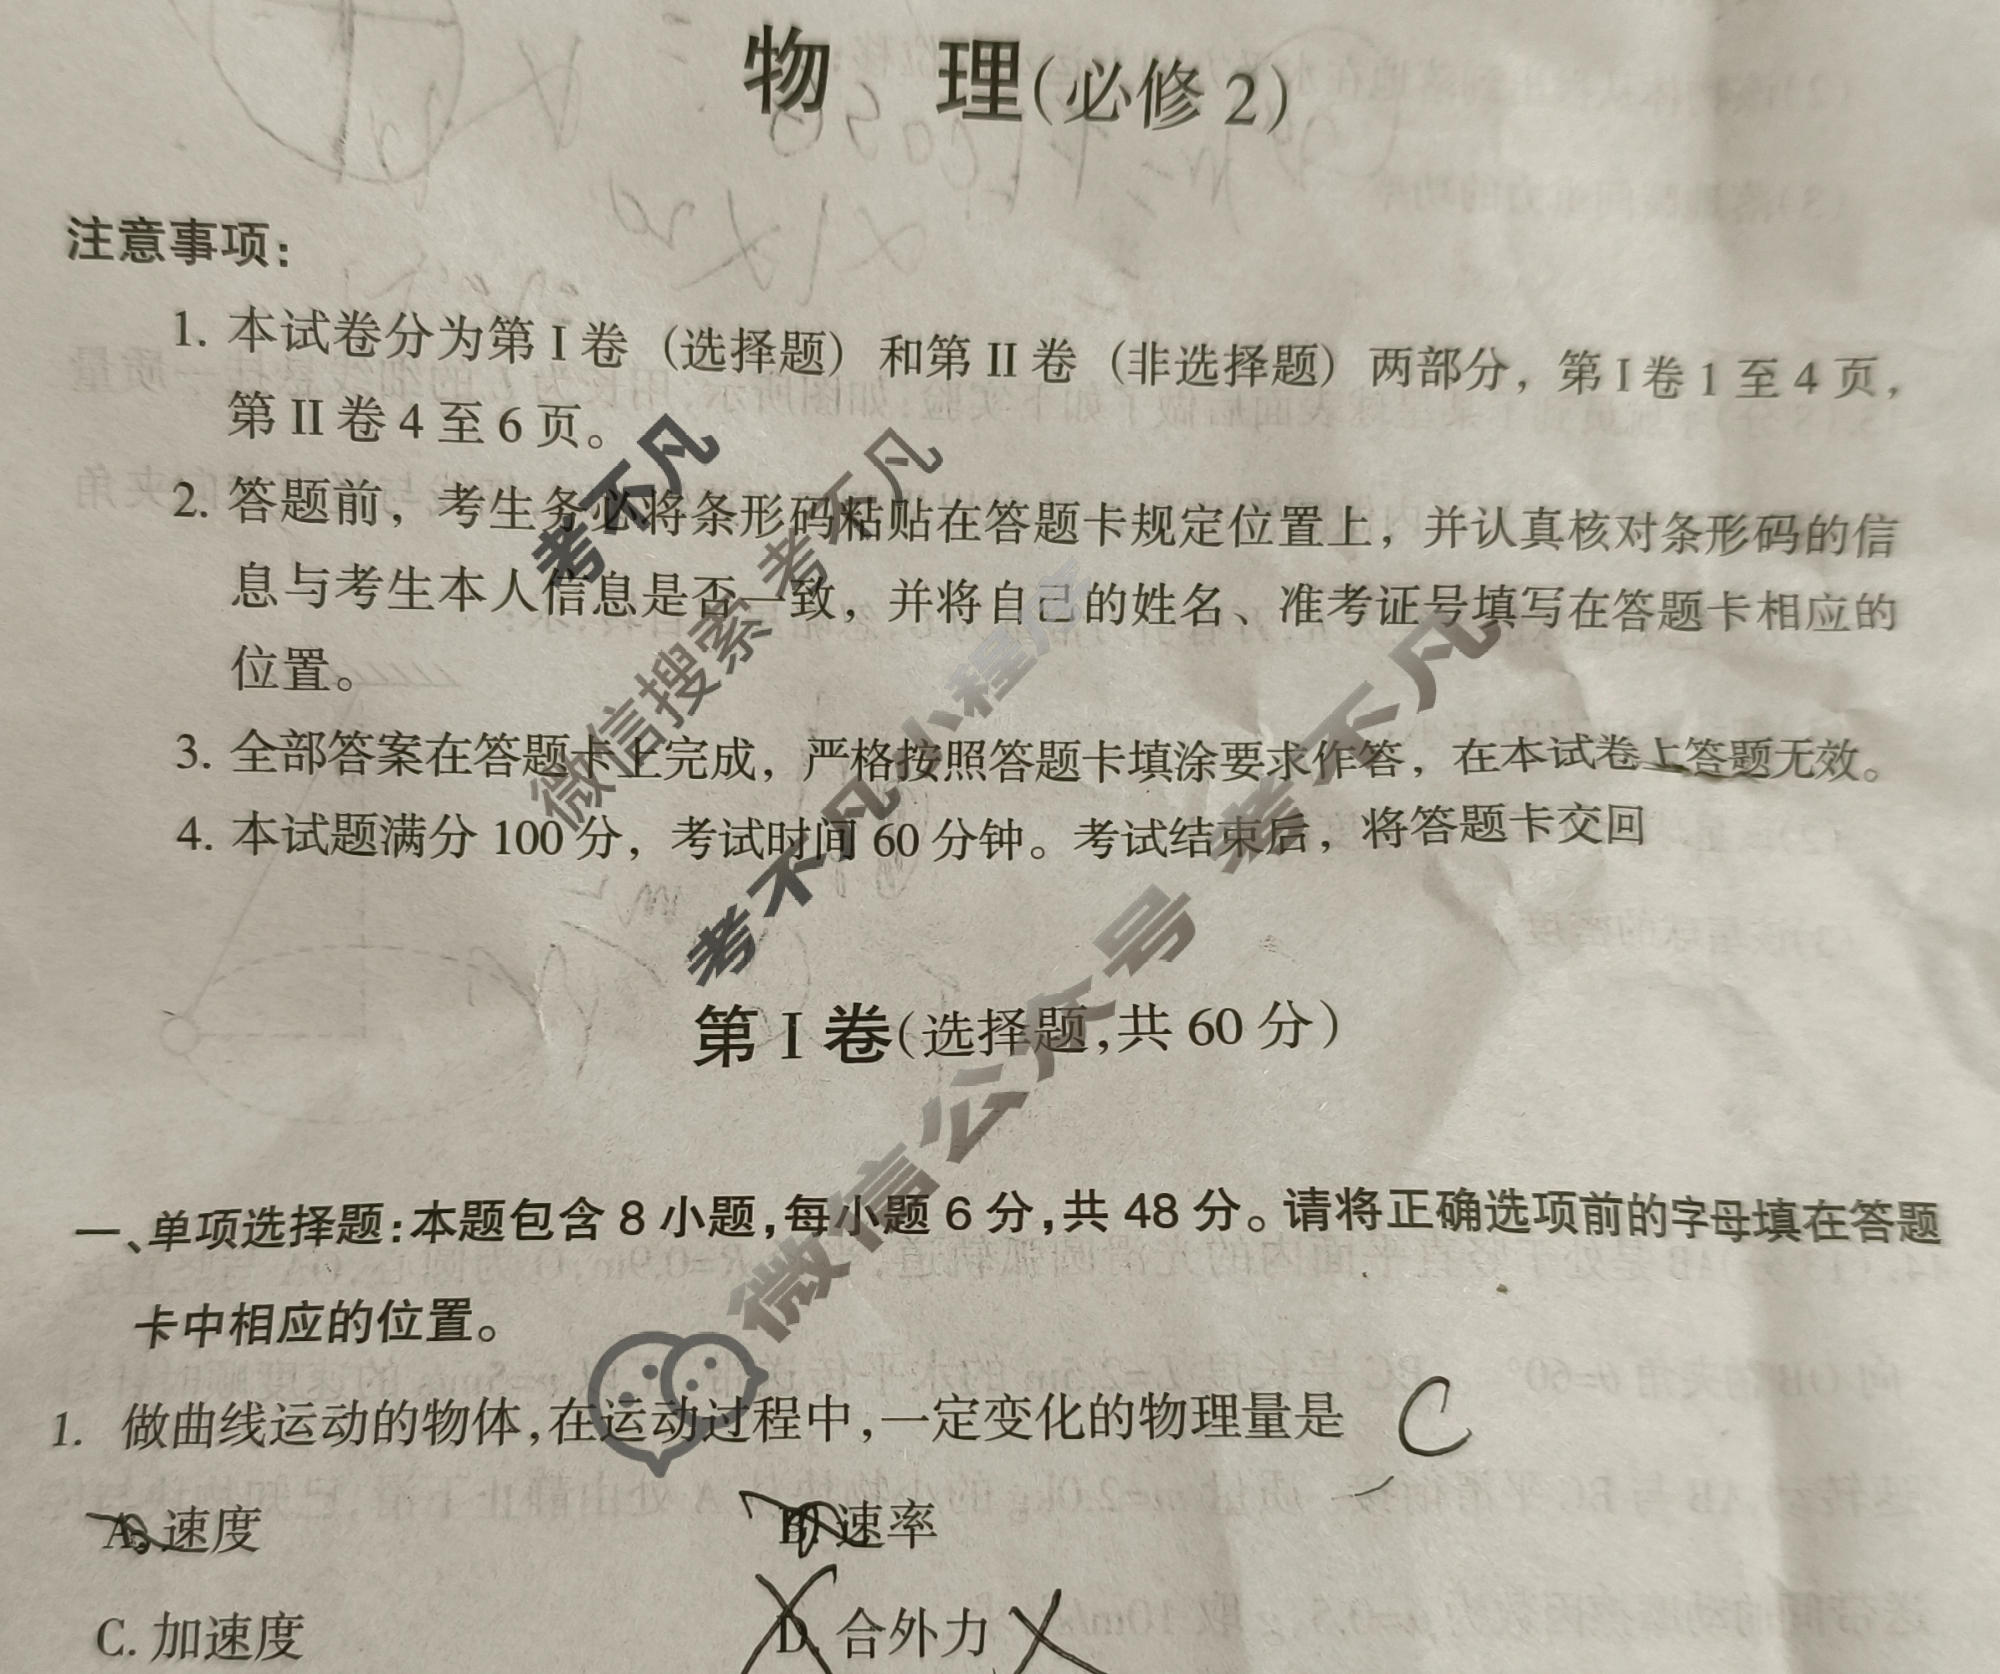 物 理(必修 2)
注意事项:
1. 本试卷分为第 I 卷 (选择题) 和第 II 卷 (非选择题) 两部分, 第 I 卷 1 至 4 页,
第 II 卷 4 至 6 页。
2. 答题前, 考生务必将条形码粘贴在答题卡规定位置上, 并认真核对条形码的信
息与考生本人信息是否一致, 并将自己的姓名、准考证号填写在答题卡相应的
位置。
3. 全部答案在答题卡上完成, 严格按照答题卡填涂要求作答, 在本试卷上答题无效。
4. 本试题满分 100 分, 考试时间 60 分钟。考试结束后, 将答题卡交回
考不凡
微信搜索 考不凡
考不凡小程序
微信公众号 考不凡
第 I 卷(选择题,共 60 分)
一、单项选择题:本题包含 8 小题,每小题 6 分,共 48 分。请将正确选项前的字母填在答题
卡中相应的位置。
1. 做曲线运动的物体,在运动过程中,一定变化的物理量是 C
A. 速度 B. 速率
C. 加速度 D. 合外力